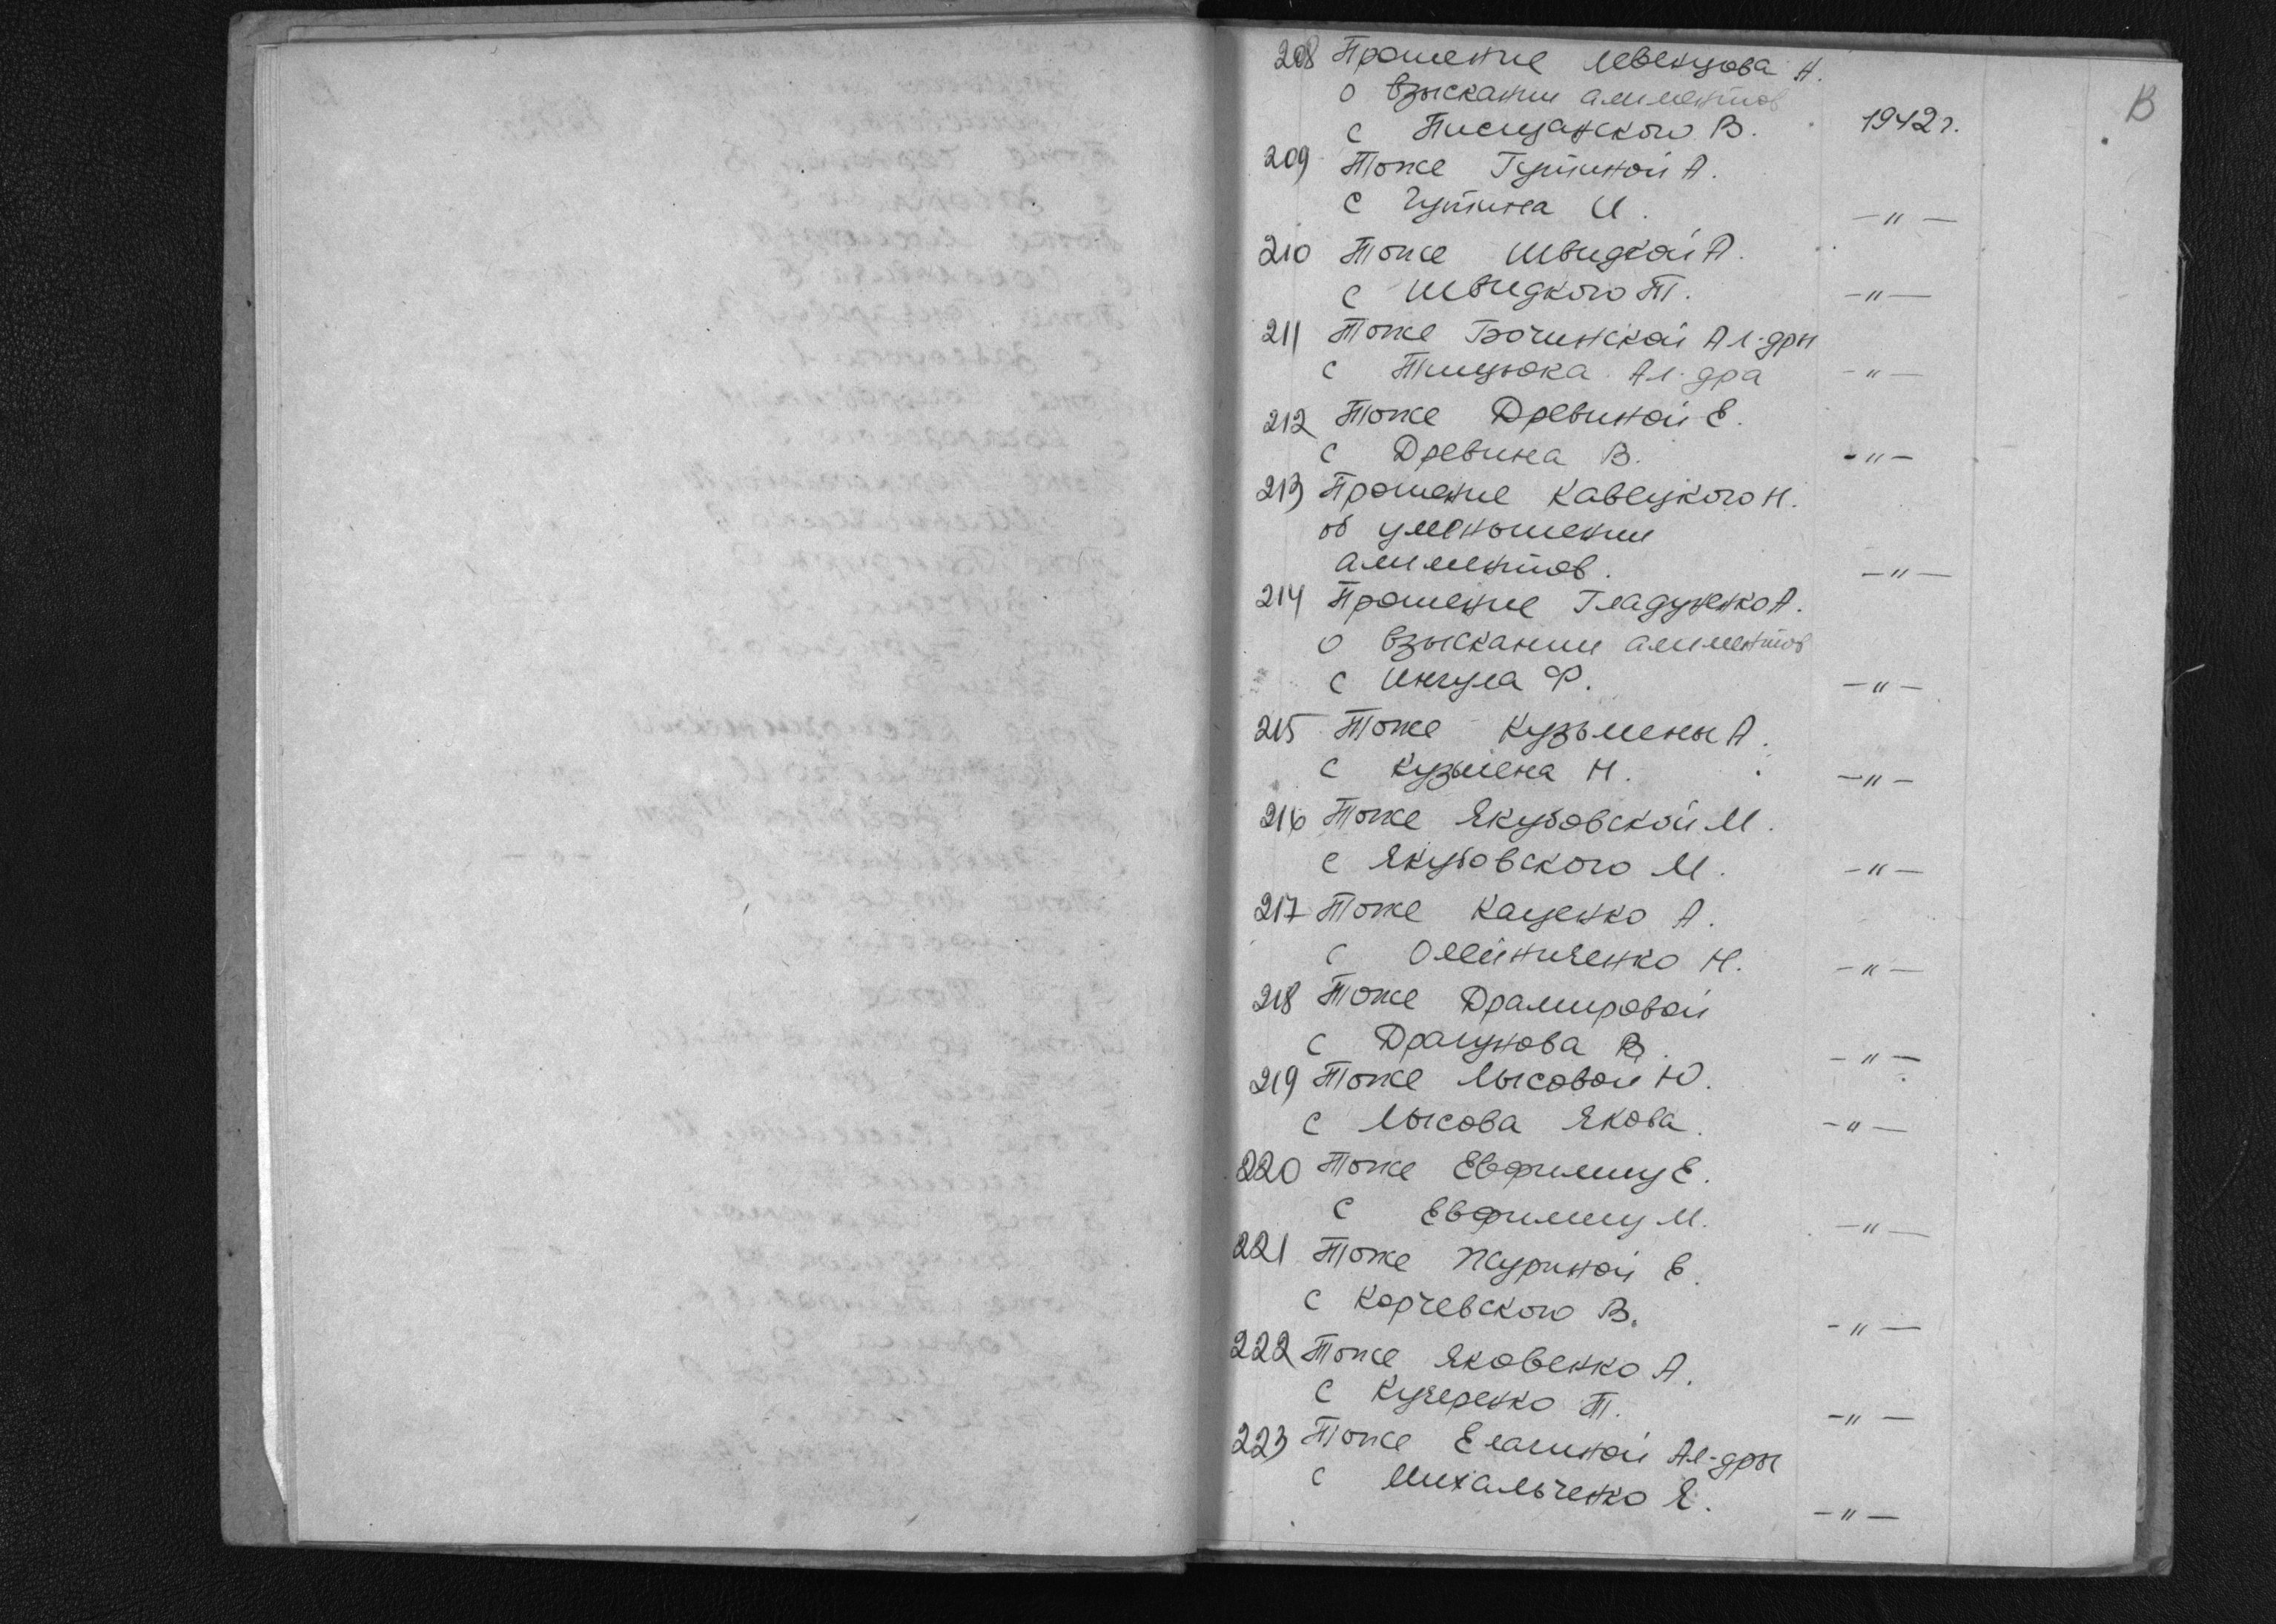 В
208 Прошение Левенцова Н.
о взыскании алиментов
с Писчанского В. 1942 г.
209 Тоже Гутиной А.
с Гутина И. -"-
210 Тоже Швидкой А.
с Швидкого П. -"-
211 Тоже Бочинской Ал-дры
с Тищюка Ал-дра -"-
212 Тоже Древиной Е.
с Древина В. -"-
213 Прошение Кавецкого Н.
об уменьшении
алиментов. -"-
214 Прошение Гладуненко А.
о взыскании алиментов
с Ингула Ф. -"-
215 Тоже Кузьмены А.
с Кузьмена Н. -"-
216 Тоже Якубовской М.
с Якубовского М. -"-
217 Тоже Каценко А.
с Олейниченко Н. -"-
218 Тоже Драмировой
с Драгунова В. -"-
219 Тоже Лысовой Ю.
с Лысова Якова. -"-
220 Тоже Евфимиу Е.
с Евфимиу М. -"-
221 Тоже Журиной Е.
с Корчевского В. -"-
222 Тоже Яковенко А.
с Кучеренко П. -"-
223 Тоже Елагиной Ал-дры
с Михальченко Я. -"-